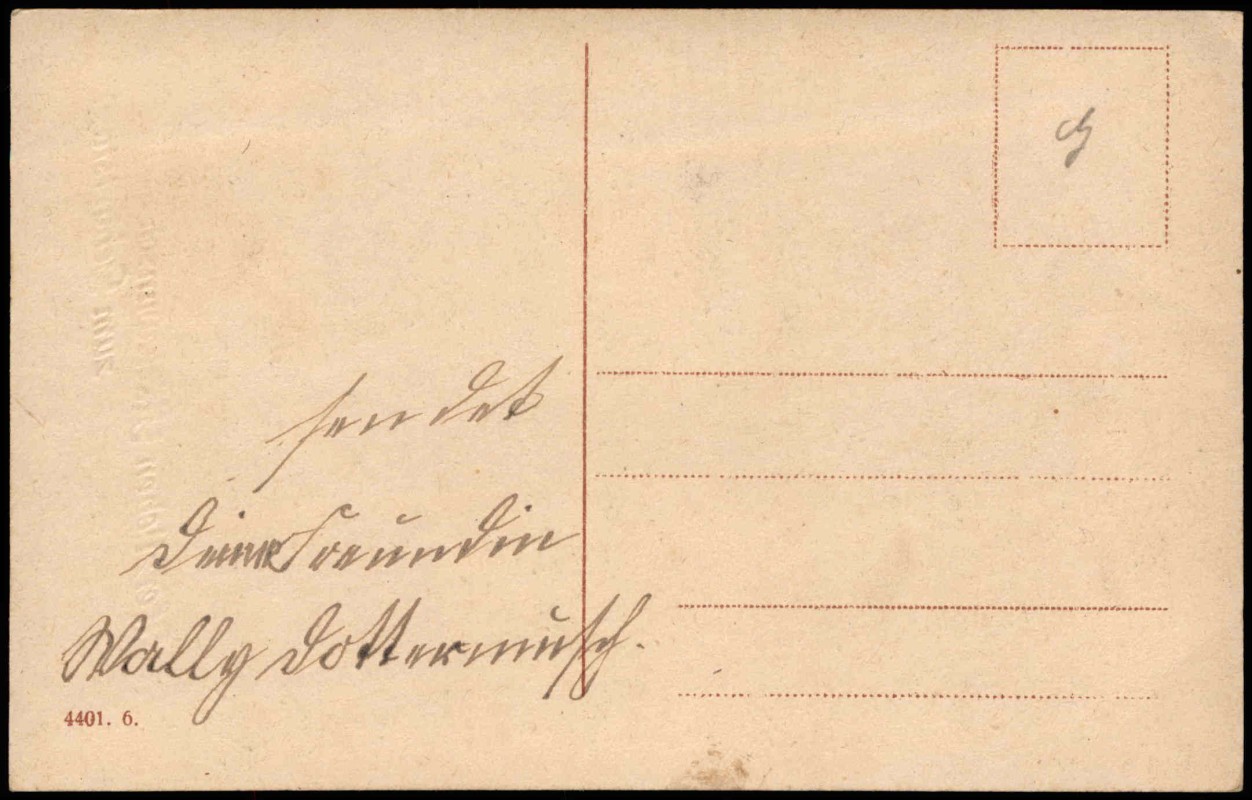 sendet
Deine Freundin
Wally Dottermusch.
4401. 6.